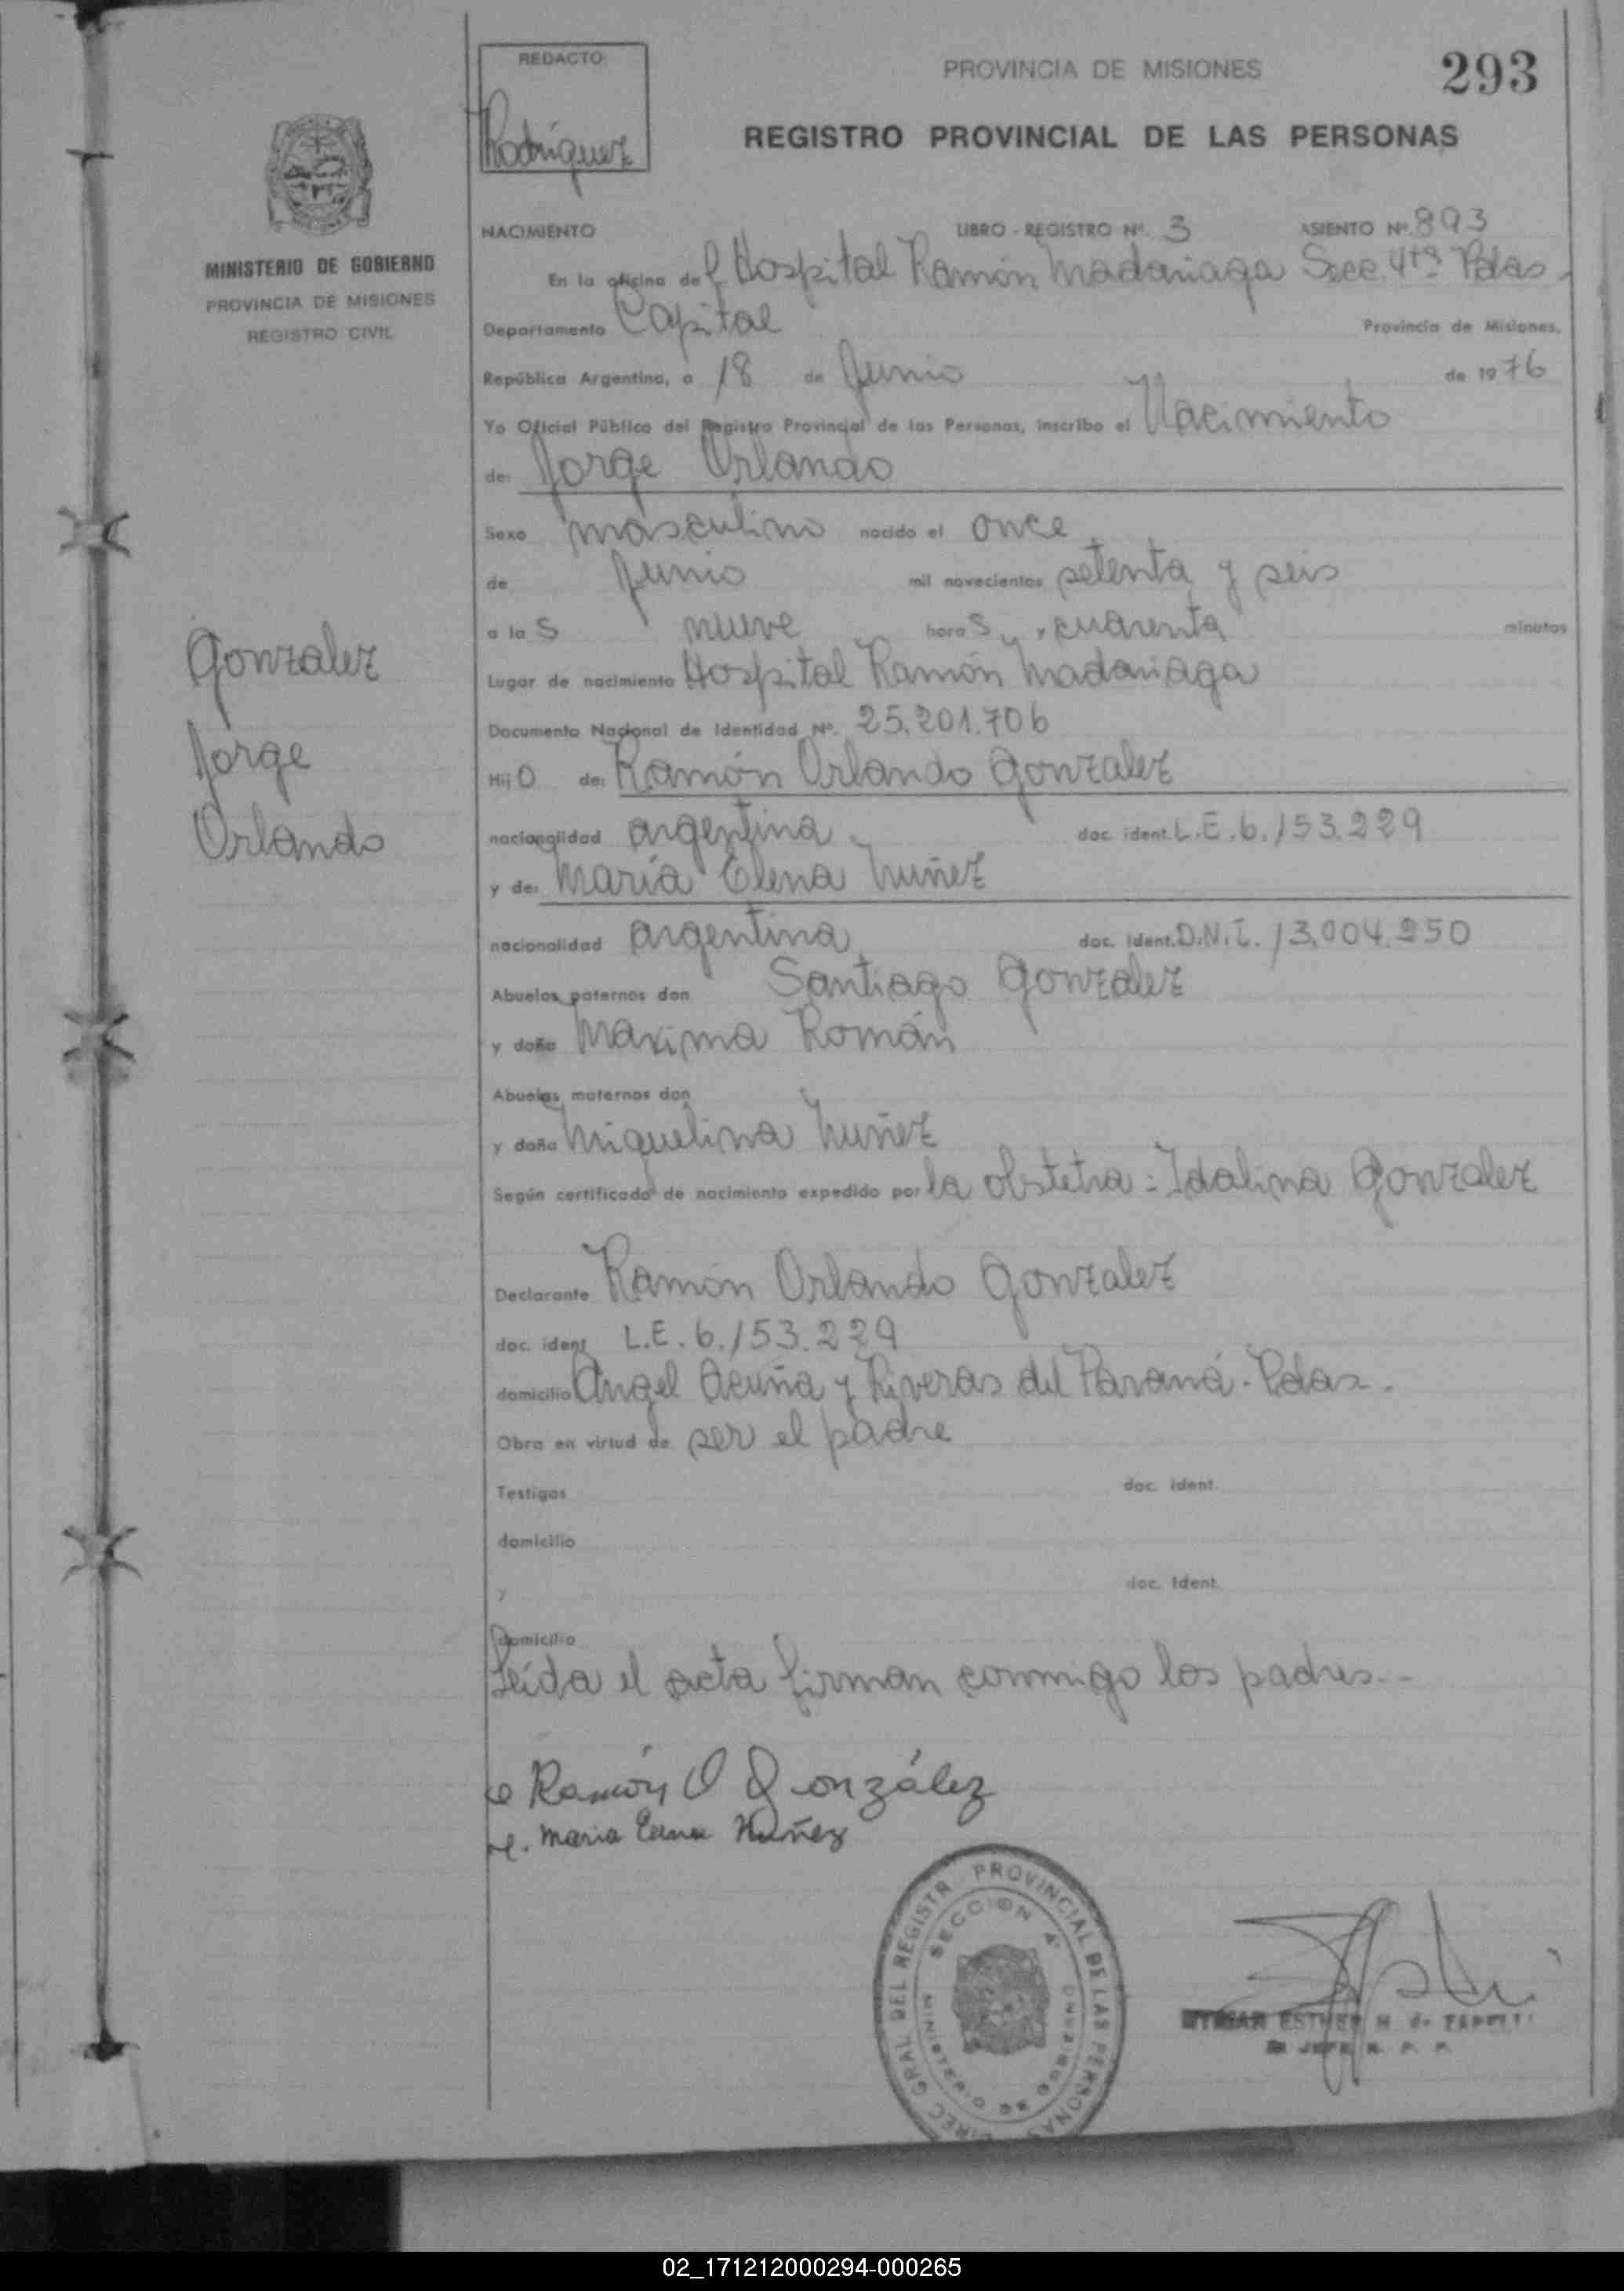 REDACTO
Rodríguez
PROVINCIA DE MISIONES
293
REGISTRO PROVINCIAL DE LAS PERSONAS
MINISTERIO DE GOBIERNO
PROVINCIA DE MISIONES
REGISTRO CIVIL
NACIMIENTO LIBRO - REGISTRO Nº. 3 ASIENTO Nº. 893
En la oficina del Hospital Ramón Madariaga Secc. 4ta Pdas.
Departamento Capital Provincia de Misiones,
República Argentina, a 18 de Junio de 1976
Yo Oficial Público del Registro Provincial de las Personas, inscribo el Nacimiento
de: Jorge Orlando
Sexo masculino nacido el once
de Junio mil novecientos setenta y seis
a las nueve horas y cuarenta minutos
Lugar de nacimiento Hospital Ramón Madariaga
Documento Nacional de Identidad Nº. 25.201.706
Hijo de: Ramón Orlando Gonzalez
nacionalidad argentina doc. ident. L.E. 6.153.229
y de: María Elena Nuñez
nacionalidad argentina doc. ident. D.N.I. 13.004.250
Abuelos paternos don Santiago Gonzalez
y doña Maxima Román
Abuelos maternos don
y doña Miquelina Nuñez
Según certificado de nacimiento expedido por la obstetra: Idalina Gonzalez
Declarante Ramón Orlando Gonzalez
doc. ident L.E. 6.153.229
domicilio Angel Acuña y Riveras del Paraná - Pdas.
Obra en virtud de ser el padre
Testigos doc. ident.
domicilio
y doc. Ident.
domicilio
Leída el acta firman conmigo los padres.-
Gonzalez
Jorge
Orlando
Ramón O González
Maria Elena Nuñez
DIREC GRAL DEL REGISTR PROVINCIAL DE LAS PERSONAS
SECCION 4ª
MINISTERIO DE GOBIERNO
ESTHER M. de
JEFE R. P. P.
02_171212000294-000265